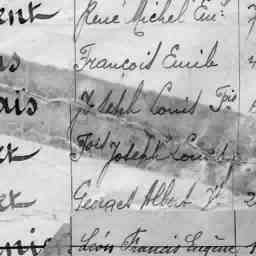 ent René Michel Em.
François Emile
ais Joseph Louis Fois
et Fois Joseph Louis
et Georges Albert V. 2
Léon Francis Eugène